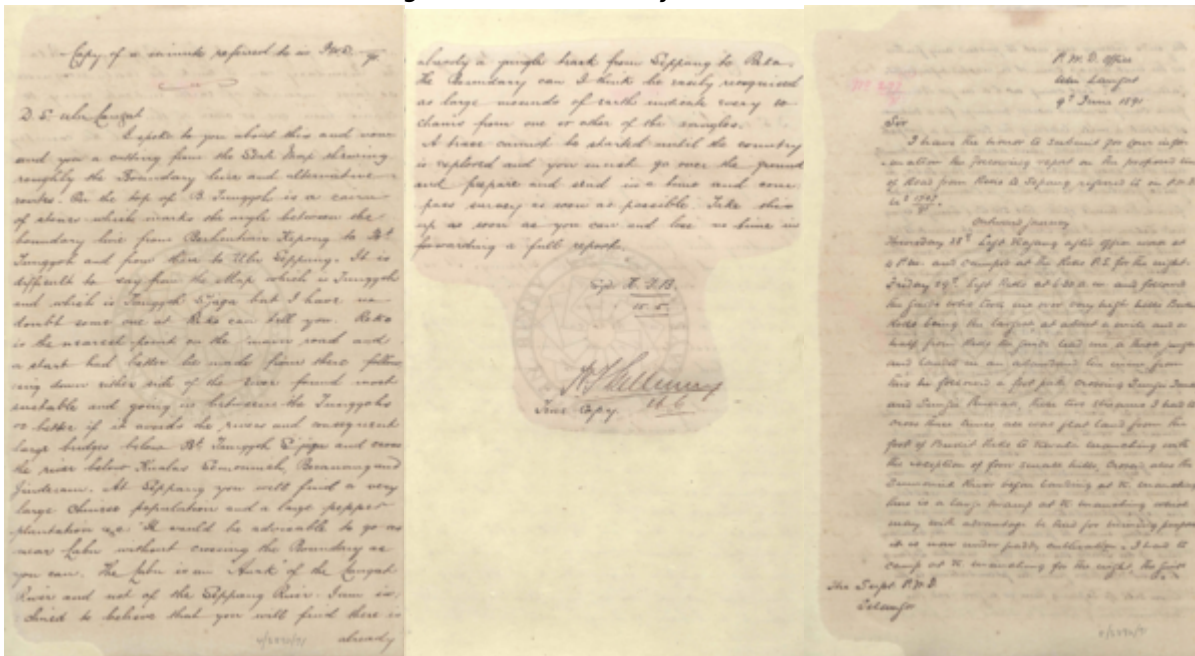 Copy of a minute referred to in P.W.D.
D. E. Ulu Langat
I spoke to you about this and now
send you a cutting from the State Map showing
roughly the Boundary line and alternative
routes. On the top of B. Tunggoh is a cairn
of stones which marks the angle between the
boundary line from Berhentian Kepong to Bt.
Tunggoh and from there to Ulu Sippang. It is
difficult to say from the Map which is Tunggoh
and which is Tunggoh but I have no
doubt some one at Reko can tell you. Reko
is the nearest point on the main road and
a start had better be made from there follow
ing down either side of the River found most
suitable and going in between the Tunggohs
or better if it avoids the rivers and consequent
large bridges below Bt. Tunggoh and cross
the river below Kualas Beranang and
At Sippang you will find a very
large Chinese population and a large pepper
plantation It would be advisable to go as
near Labu without crossing the Boundary as
you can. The Labu is an "Anak" of the Langat
River and not of the Sippang River. I am in
clined to believe that you will find there is
already
already a jungle track from Sippang to
The Boundary can I think be easily recognised
as large mounds of earth indicate every 10
chains from one or other of the angles.
A trace cannot be started until the country
is explored and you must go over the ground
and prepare and send in a time and com
pass survey as soon as possible. Take this
up as soon as you can and lose no time in
forwarding a full report.
Sgd H. F. B.
True Copy.
P. W. D. Office
Ulu Langat
9th June 1891
Sir
I have the honor to submit for your infor
mation the following report on the proposed line
of Road from Reko to Sepang referred to in P.W.D.
Outward journey
Thursday 28th Left Kajang after office work at
4 P.m. and camped at the Reko P.S. for the night.
Friday 29th. Left Reko at 6.30 a.m. and followed
the guide who took me over very high hills Bukit
Reko being the largest at about a mile and a
half from Reko the guide lead me a thick jungle
and landed in an abandoned tin mine from
this he followed a foot path crossing Sungie
and Sungie these two streams I had to
cross three times all was flat land from the
foot of Bukit Reko to
the exception of four small hills, crossed also the
River before landing at
this is a large swamp at which
may with advantage be
it is now under paddy cultivation. I had to
camp at for the night, the guide
The Supt. P.W.D.
Selangor